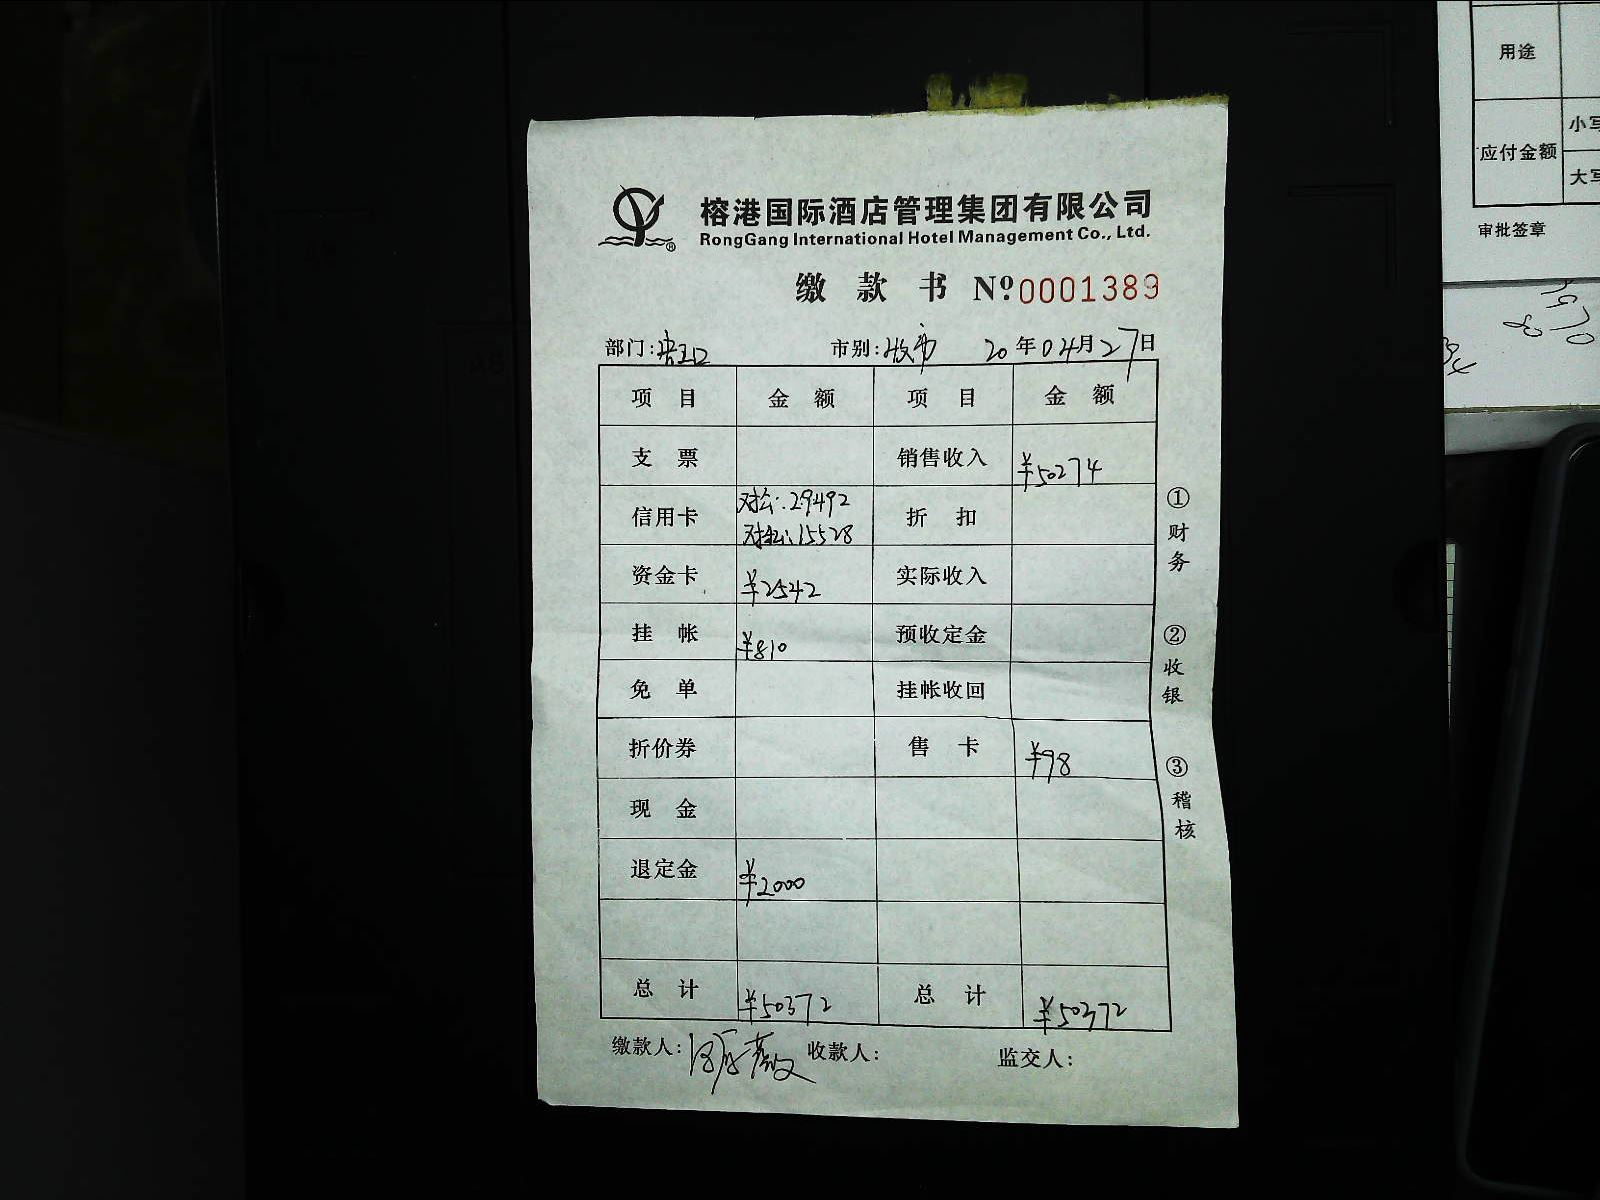 榕港国际酒店管理集团有限公司
RongGang International Hotel Management Co., Ltd.
缴款书 Nº 0001389
部门: 市别: 20年04月27日
项目 金额 项目 金额
支票 销售收入 ¥50274
信用卡 对公:29492 折扣
15528
资金卡 ¥2542 实际收入
挂帐 ¥810 预收定金
免单 挂帐收回
折价券 售卡 ¥98
现金
退定金 ¥2000
总计 ¥50372 总计 ¥50372
缴款人: 收款人: 监交人:
①财务
②收银
③稽核
用途
应付金额 小写
大写
审批签章